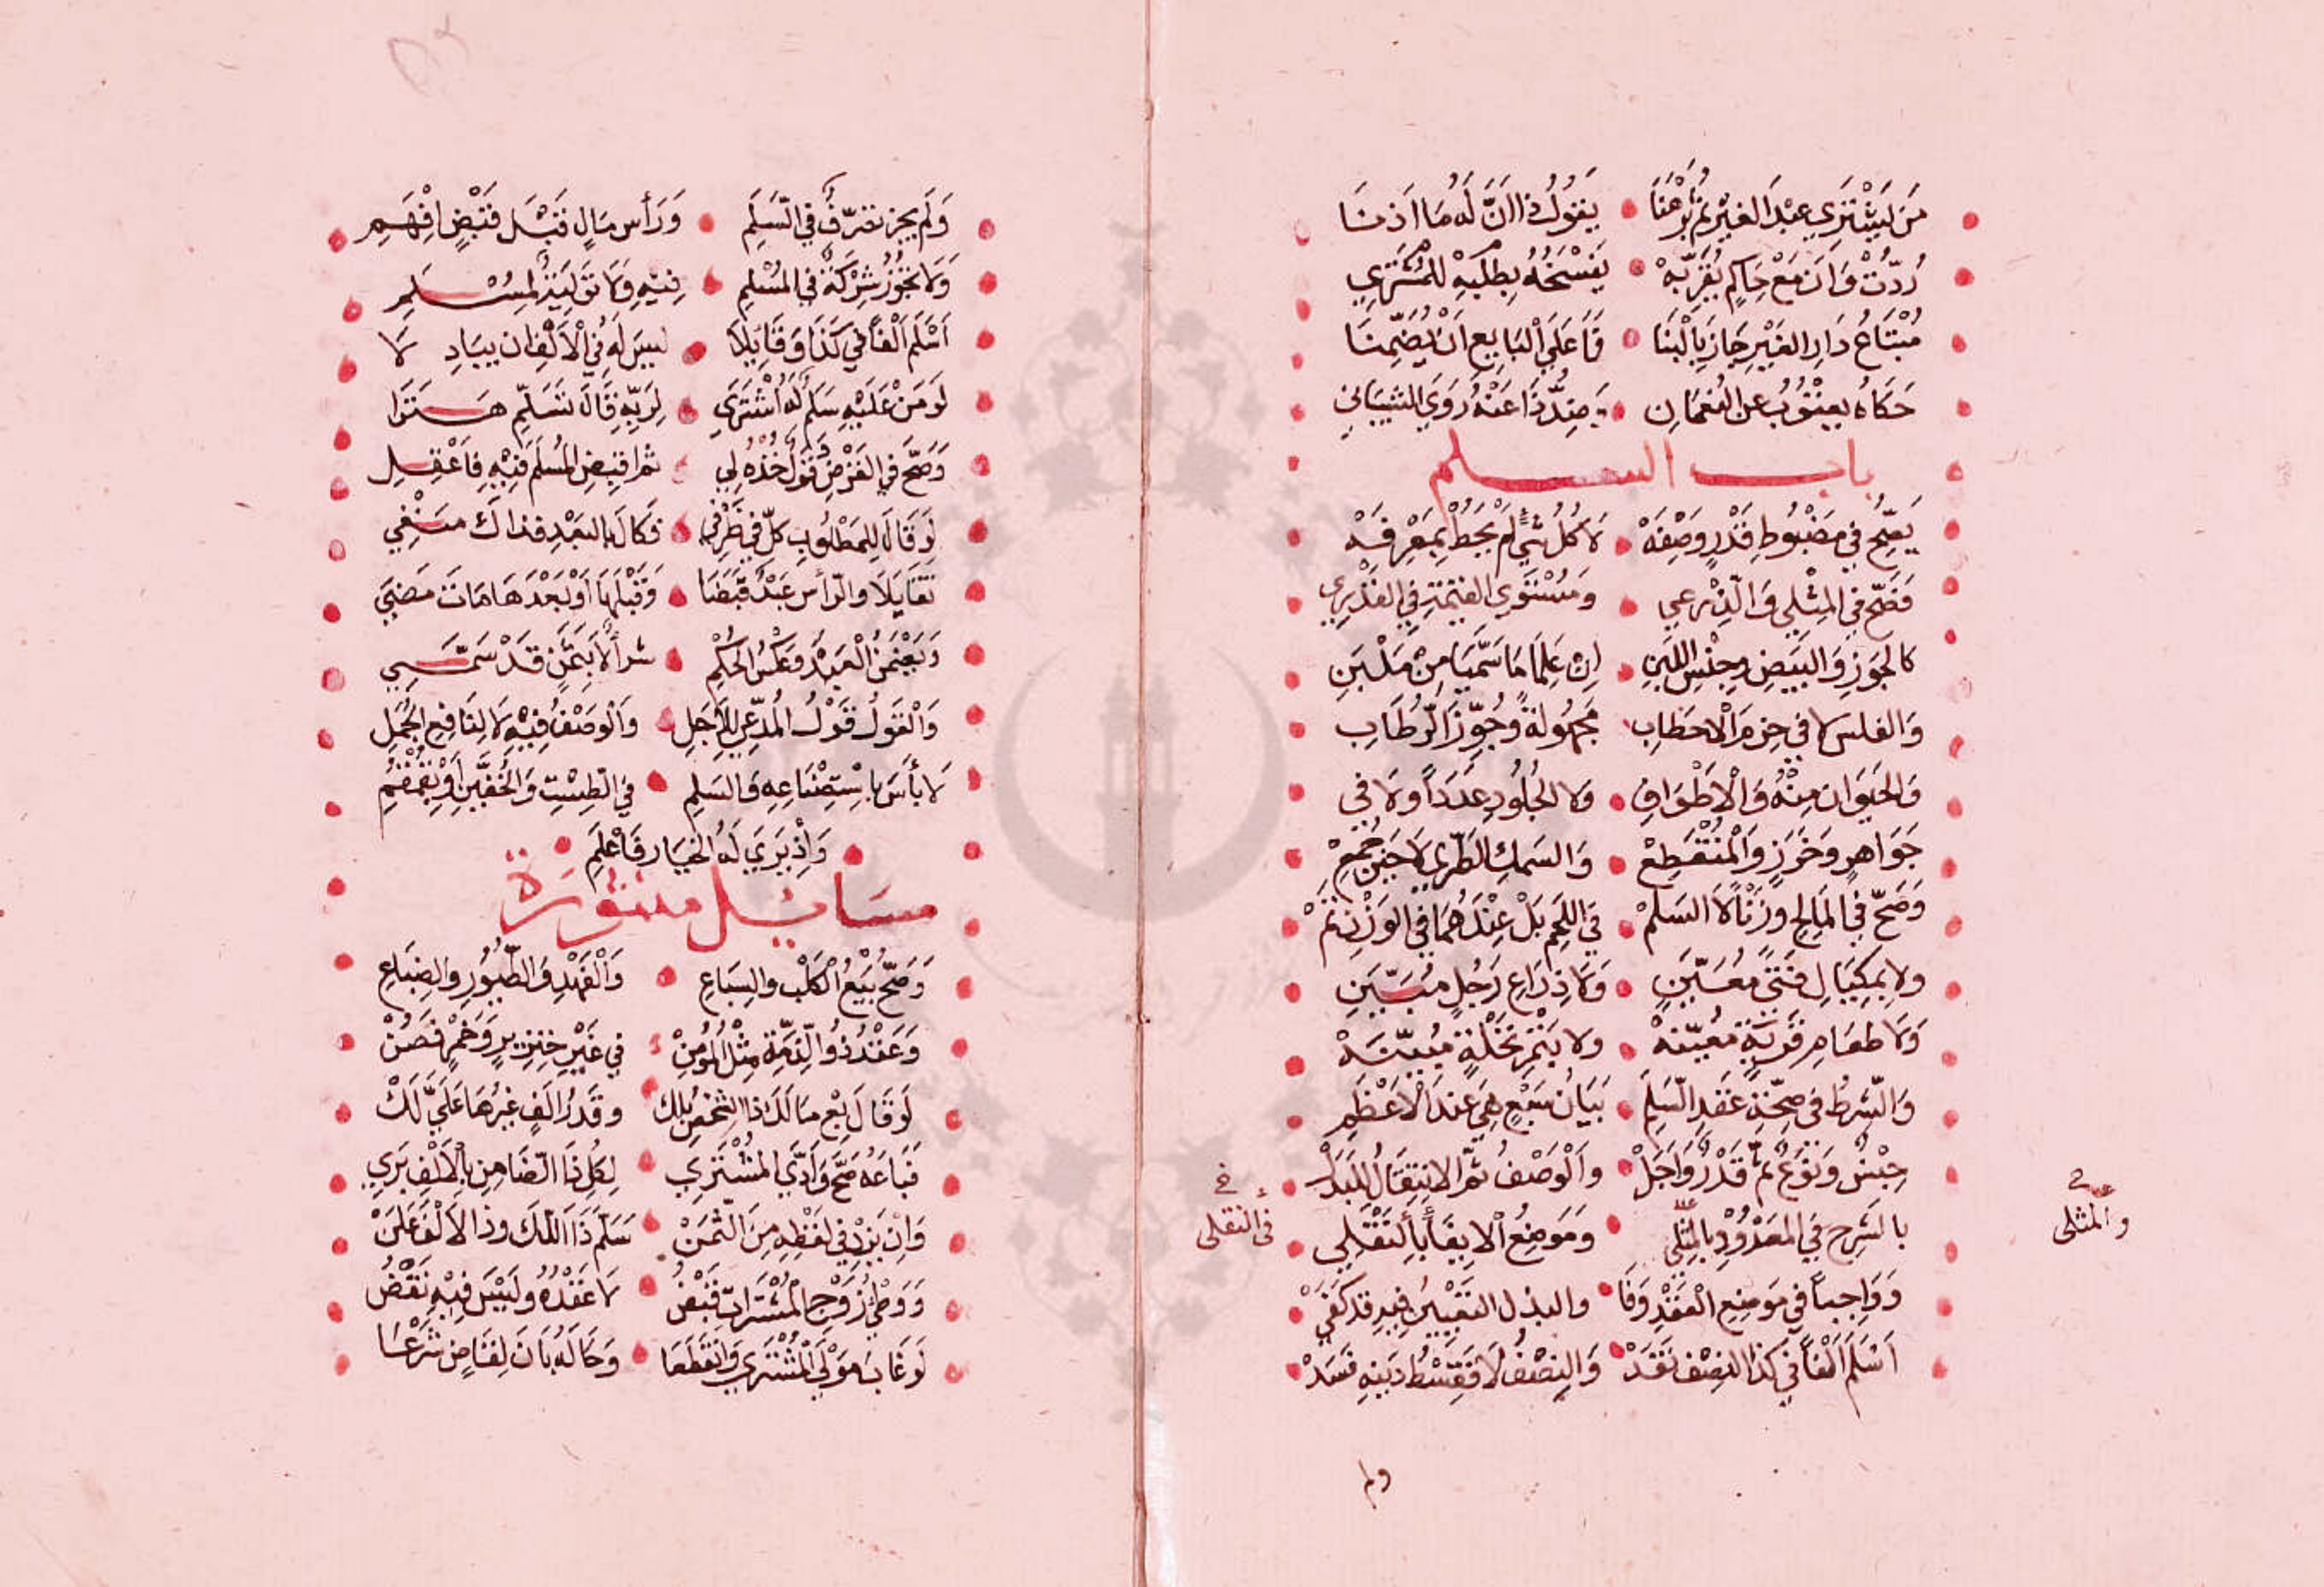 مَن يَشْتَرِي عبْدَ الغيْرِ ثم بَرْهَنَا يَقولُ ذا انَّ لَه مَا اَذِنَا
رُدَّتْ وَاَن مَعْ حَاكِمٍ يُقَرِّبِهْ يَفسْخُهُ بِطلَبِهْ للمُشْتَرِي
مُبْتَاعُ دَارِ الغَيْرِ جَازَ بِالْبِنَا فَاعَلَى الْبَايِعِ اَنْ يُضَمِّنَا
حَكَاهُ يعقُوبُ عن النُعْمَانِ وَضِدَّ ذَا عَنْهُ رَوَى الشيبَانِي
باب السلم
يَصِحُّ في مَضْبُوطِ قَدْرٍ وَصِفَهْ لَا كُلُّ شَيٍّ لَمْ يُحَطْ بِمَعْرِفَهْ
فَصَحَّ في المِثْلِي وَالذَرْعِي وَمُسْتَوِي القِيْمَةِ في التقْدِيرِي
كالجَوزِ وَالبَيضِ وجِنْسِ اللَبِنِ إن عَلِمَا مَا سَمَّيَا مِنْ مَلْبَنِ
وَالفلسِ لا في حِزَمِ الْاحطَابِ مَجهُولةً وجُوِّزَ الرُطَابِ
وَالحَيَوَانِ مِنْهُ وَالْاَطْوَافِ وَلا الجُلُودِ عَدَداً وَلَا في
جَوَاهِرٍ وَخَرَزٍ وَالْمُنْقَطِعْ وَالسَمكِ الطَرِي لَا حِينَ جُمِعْ
وَصَحَّ في المَالِحِ وزَنْاً لَا السَلَمْ في اللحَمِ بَلْ عِنْدَهُمَا في الوَزْنِ ثَمْ
ولا بِمِكيَالِ فَتىً مُعَيَّنٍ وَلَا ذِرَاعِ رَجُلٍ مُبَيَّنِ
وَلَا طعَامِ قَريَةٍ مُعَيّنهْ ولا بتَمرِ نَخْلَةٍ مُبيّنَهْ
وَالشَرطُ في صِحَّةِ عَقدِ السَلَمِ بَيَانُ سَبْعٍ هِيَ عندَ الْاَعْظَمِ
جِنْسٌ وَنَوعٌ ثُمَّ قَدْرٌ وَاَجَلْ وَالْوَصْفُ ثُمَّ الانتِقَالُ لِلبَدَلْ
بالشَرحِ في المَعْدُودِ بالمِثلي وَمَوضِعُ الايفَآ بِالنقْلِي
والمثلي
في النقلى
وَوَاجِباً في مَوضِعِ الْعَقْدِ وَفَا والبذل التَعْيِيْنُ فِيهِ قد كَفَى
اَسْلَمَ اَلْفاً في كَذا النِصْفُ نَقَدْ وَالنِصْفُ لَا فَقِسْطُ دَينِهِ فَسَدْ
ولم
وَلَم يجز تصَرّفٌ في السّلَمِ وَرَأسِ مَالٍ قَبْلَ قَبْضٍ افْهَمِ
وَلَا تَجُوزُ شِرْكَةٌ في المُسْلَمِ فِيْهِ وَلَا تَوْلِيَةٌ لِمُسْلِمِ
اَسْلَمَ اَلْفاً في كَذَا وَقَايَلَا ليسَ لَهُ في الْاَلْفِ ان يبَادِلَا
لَو مَنْ عَلَيْهِ سَلَمٌ لَهُ اشْتَرَي لِرَبِّهِ قَالَ تَسَلَّمْ هَتَرَا
وَصَحَّ في القَرْضِ فَقَوْلُ خُذْهُ لِي ثم اقبِضِ المُسلَمَ فِيْهِ فَاعْقِلِ
لَو قَالَ لِلمَطْلُوبِ كِلْ في ظَرْفي فَكَالَ بالبعْدِ فذَاكَ مَنْفِي
تقَايَلَا والرأسُ عَبْدٌ قَبَضَا وَقَبْلَهَا اَوْ بَعْدَهَا مَاتَ مَضَي
وَيَغْرَمَنَّ الْعَبْدُ وَعَكْسُ الحُكْمِ شرأُ لَا بِثَمَنٍ قَدْ سُمِّي
وَالْقَولُ قَوْلُ المُدّعِي لِلاَجَلِ وَالْوصْفُ فِيْهِ لَا لِنَافِع الجُمَلِ
لَا بأسَ بِاسْتِصْنَاعِهِ وَالسَلَمِ في الطِسْتِ وَالخُفَّينِ اَوْ بِقُمْقُمِ
وَاِذْ يَرَي لَهُ الخِيَارَ فَاعْلَمِ
مسَايل منثورَة
وَصَحَّ بَيْعُ الْكَلْبِ والسِبَاعِ وَالْفَهْدِ وَالطُيُورِ وَالضِبَاعِ
وَعَقْدُ ذُو الذِمَّةِ مِثْلُ المُؤْمِنْ في غَيْرِ خِنزِيرٍ وَخَمْرٍ فَصُنْ
لَو قَالَ بِعْ مَا لَكَ ذا الشخصُ بلك وقَدْرُ اَلْفٍ غيرُهَا عَلَيَّ لَكْ
فَبَاعَهُ صَحَّ وَاَدَّي المُشْتَرِي لِكُلِّ ذَا الضَامِنِ بالْاَلْفِ بَرِي
وَاِنْ يَزِدْ في لفْظِهِ مِنَ الثَمَنْ سَلَّمَ ذَا اَللَّكَ وذا الاَلْفَ عَلَنْ
وَوَطْيُ زَوْجِ المُشْتَراةِ قَبْضُ لَا عَقْدُهُ وليْسَ فِيْهِ نَقْضُ
لَو غَابَ مَولَي الْمُشْتَري وَانقَطَعَا وَحَالُهُ بَانَ لِقَاضٍ شَرْعَا